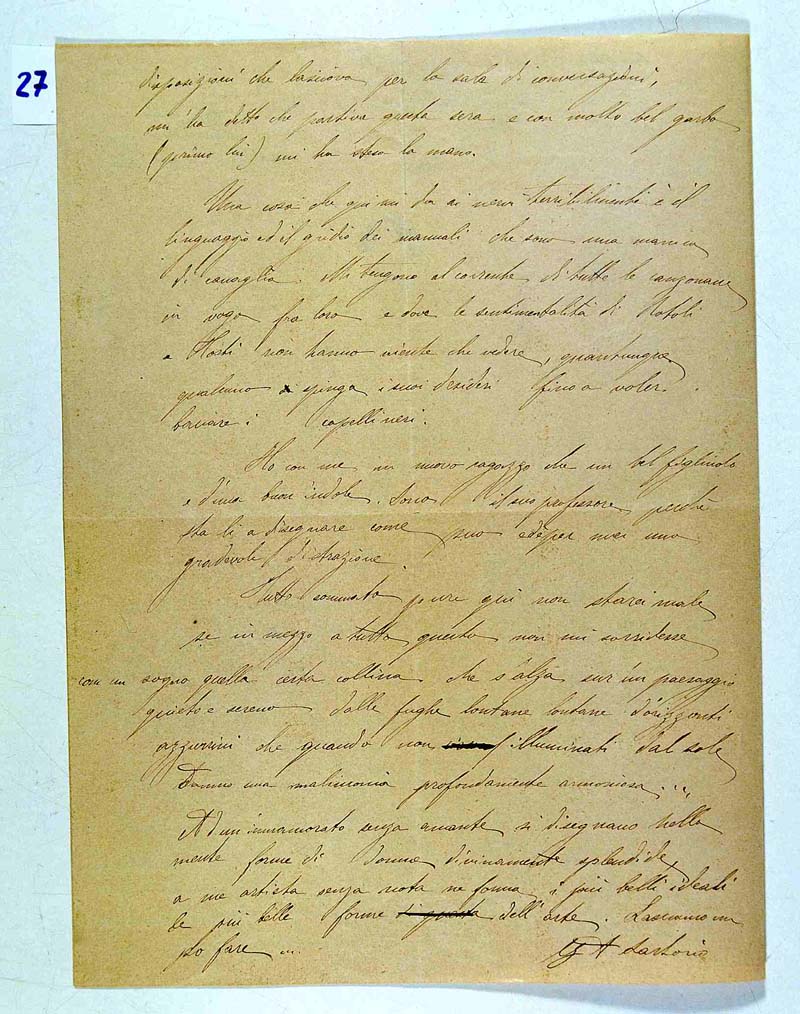 27
disposizioni che lasciava per la sala di conversazioni,
mi ha detto che partiva questa sera e con molto bel garbo
(primo lui) mi ha steso la mano.
Una cosa che qui mi da ai nervi terribilmente è il
linguaggio ed il gridio dei manuali che sono una manica
di canaglia. Mi tengono al corrente di tutte le canzonacce
in voga fra loro e dove le sentimentalità di Rotoli
e Tosti non hanno niente che vedere, quantunque
qualcuno spinga i suoi desideri fino a voler
baciare i capelli neri.
Ho con me un nuovo ragazzo che un bel figliuolo
e d'una buon indole. Sono il suo professore perchè
sta li a disegnare come può ed è per me una
gradevole distrazione.
Tutto sommato pure qui non starei male
se in mezzo a tutto questo non mi sorridesse
come un sogno quella certa collina che s'alza sur un paesaggio
quieto e sereno dalle fughe lontane lontane d'orizzonti
azzurrini che quando non illuminati dal sole
danno una malinconia profondamente armoniosa....
Ad un innamorato senza amante si disegnano nella
mente forme di donna divinamente splendide,
a me artista senza nota ne forma i più belli ideali
le più belle forme dell'arte. Lasciamomi
po fare ...
G A Sartorio